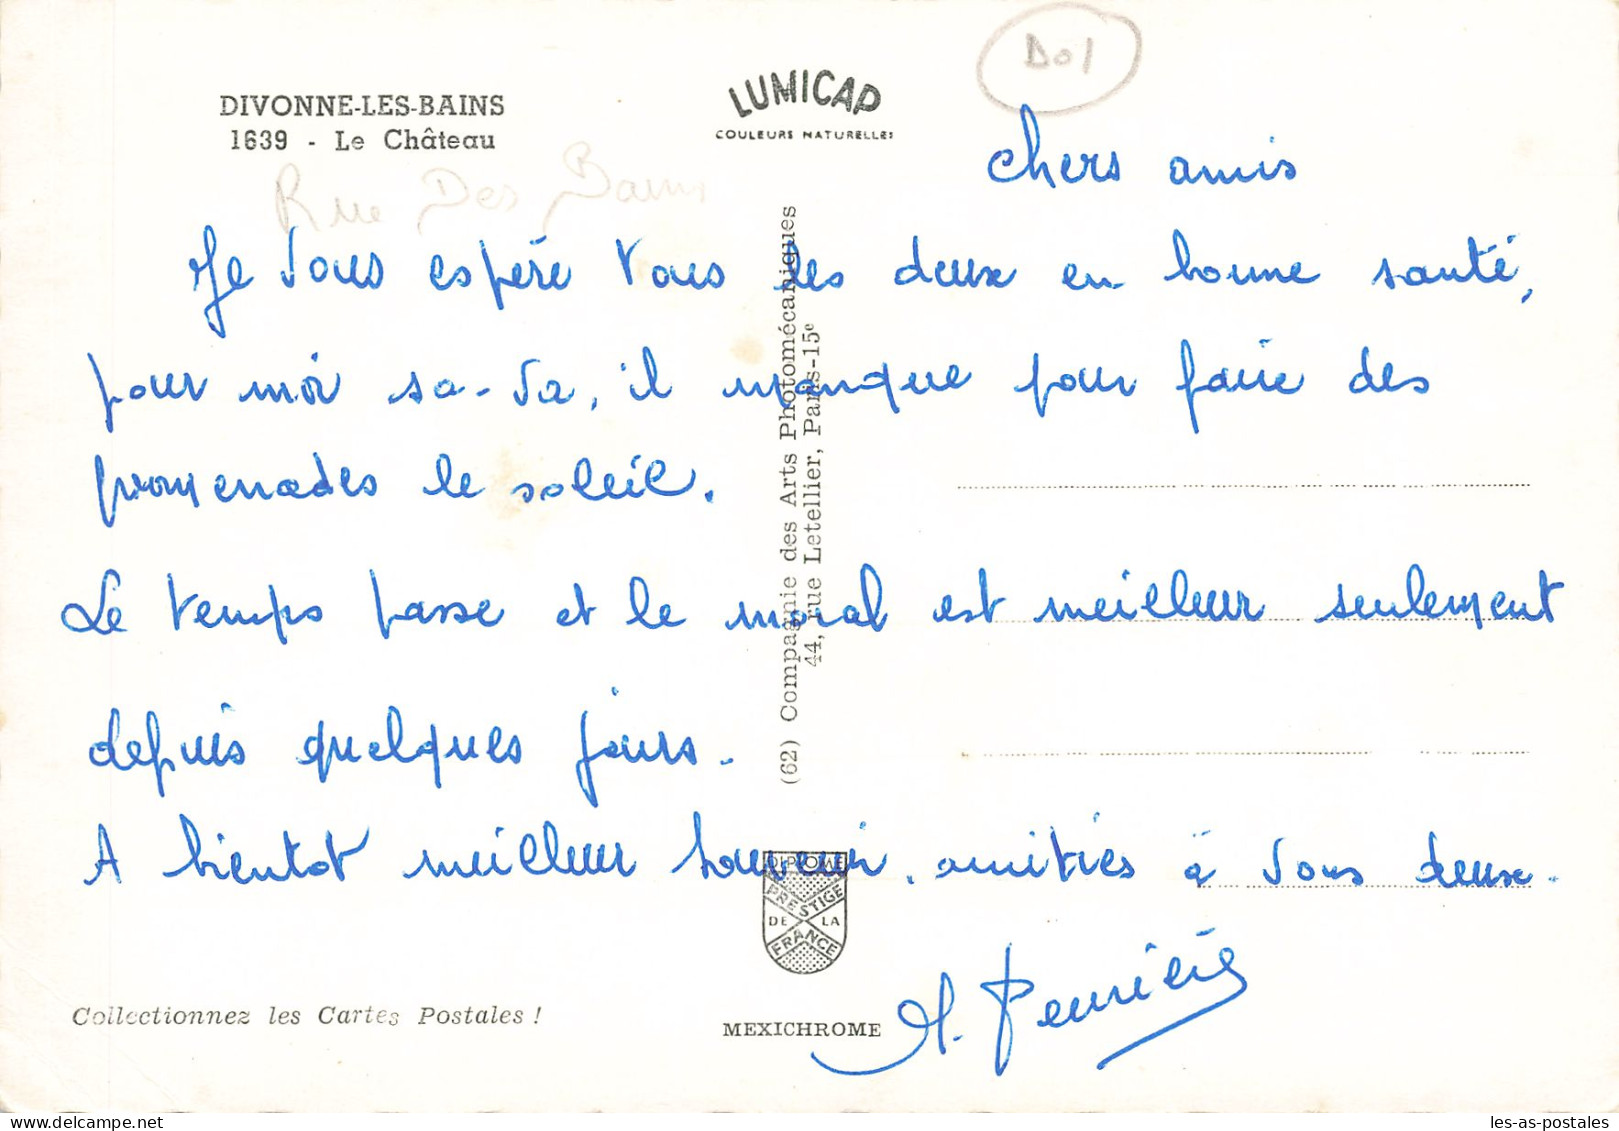 D01
DIVONNE-LES-BAINS
1639 - Le Château
LUMICAP
COULEURS NATURELLES
Rue Des Bains
Chers amis
Je vous espère tous les deux en bonne santé,
pour moi sa-va, il manque pour faire des
promenades le soleil.
Le temps passe et le moral est meilleur seulement
depuis quelques jours.
A bientot meilleur souvenir. amitiés à vous deux.
(62) Compagnie des Arts Photomécaniques
44, rue Letellier, Paris-15e
DIPLOME
PRESTIGE
DE LA
FRANCE
Collectionnez les Cartes Postales !
MEXICHROME
les-as-postales